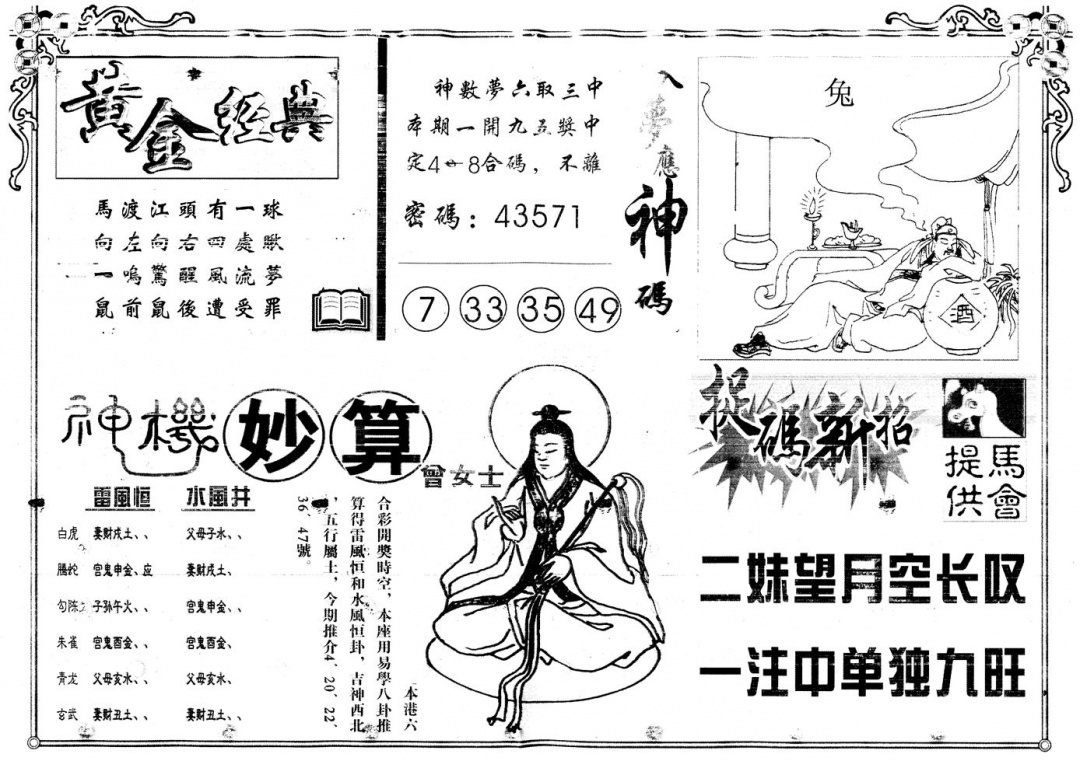 黄金经典
馬渡江頭有一球
向左向右四處瞅
一鳴驚醒風流夢
鼠前鼠後遭受罪
神數夢六取三中
本期一開九五獎中
定4-8合碼，不離
密碼：43571
7 33 35 49
入夢應神碼
兔
酒
神機妙算
曾女士
雷風恒 水風井
白虎 妻財戌土、、 父母子水、、
騰蛇 官鬼申金、应 妻財戌土、
勾陈 子孙午火、、 官鬼申金、、
朱雀 官鬼酉金、 官鬼酉金、
青龙 父母亥水、、 父母亥水、
玄武 妻財丑土、、 妻財丑土、、
本港六
合彩開獎時空，本座用易學八卦推
算得雷風恒和水風恒卦，吉神西北
，五行屬土，今期推介4、20、22、
36、47號。
捉碼新招
馬會
提供
二妹望月空长叹
一注中单独九旺